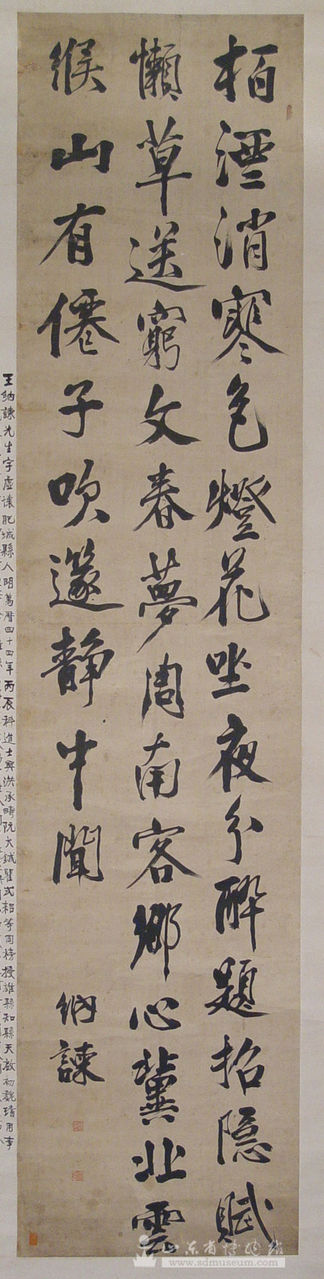 柏酒消寒色燈花坐夜分醉題招隱賦
懶草送窮文春夢周南客鄉心冀北雲
緱山有僊子吹邃静中聞
納諫
王納諫先生字虛懷肥城縣人明萬曆四十四年丙辰科進士與洪承疇阮大鋮瞿式耜等同榜授濰縣知縣天啟初魏璫用事
山东省博物馆
www.sdmuseum.com